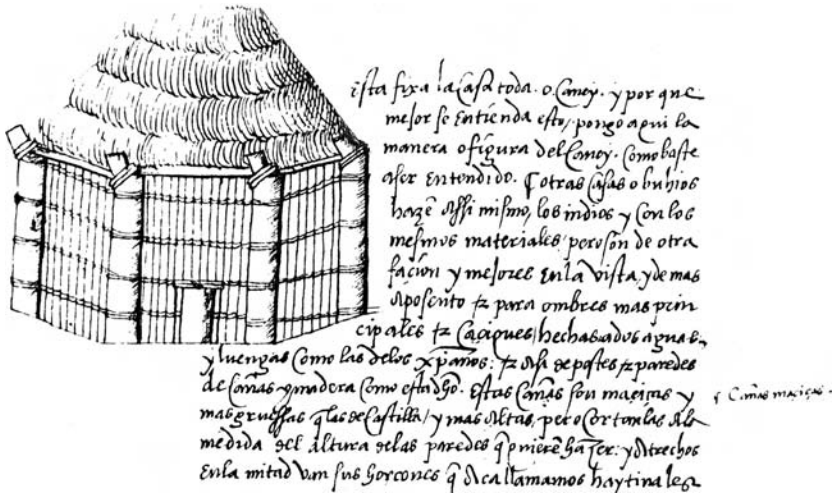 esta fixa la Casa toda. o Caney. y por que
mejor se entienda esto / pongo aqui la
manera o figura del Caney. Como baste
a ser entendido. ¶ otras Casas o buhios
hazē assi mismo, los indios y Con los
mesmos materiales; pero son de otra
facion y mejores en la vista, y de mas
aposento τ para ombres mas prin
cipales τ Caçiques / hechas a dos aguas.
y luengas Como las delos xp̄anos: τ assi de postes τ paredes
de Cañas y madera Como esta dho. estas Cañas son maçiças y
Cañas maçiças.
mas gruessas q̄ las de Castilla / y mas altas, pero Cortanlas a la
medida del altura delas paredes q̄ quierē hazer: y a trechos
en la mitad van sus horcones q̄ aca llamamos haytinales